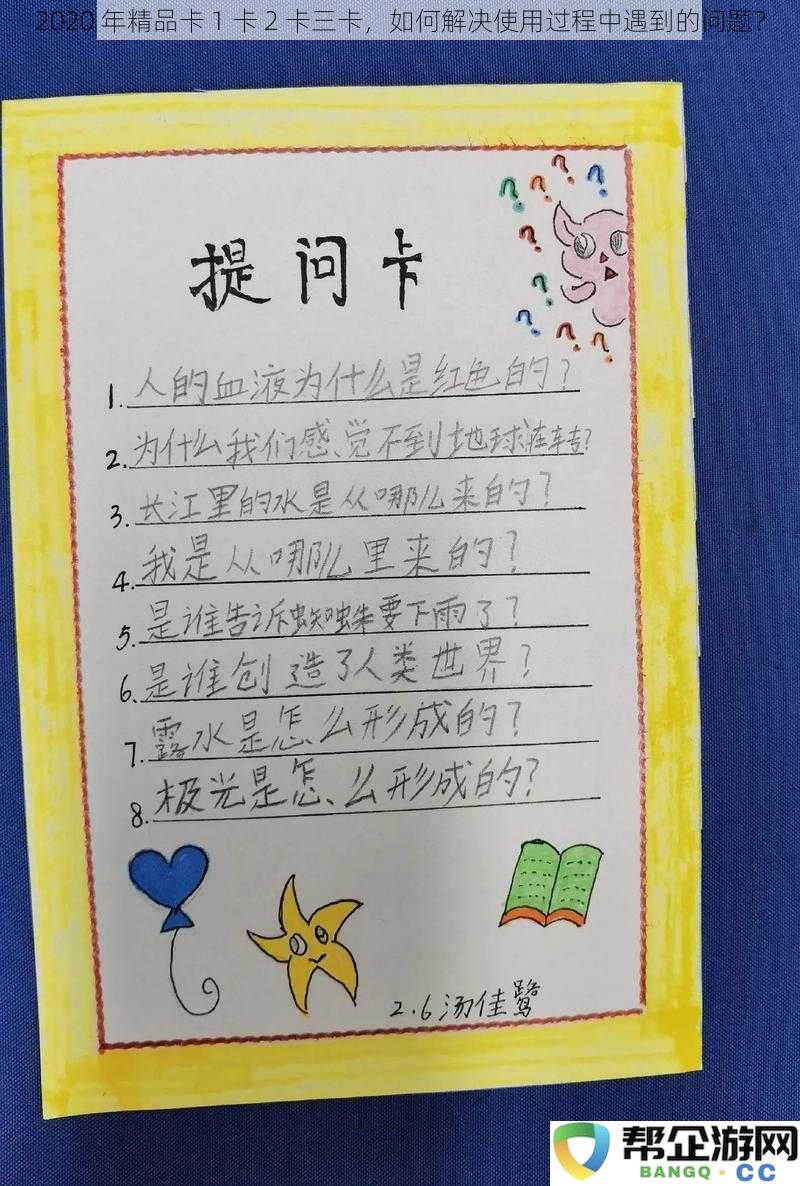 2020 年精品卡 1 卡 2 卡三卡，如何解决使用过程中遇到的问题？
? ? ? ?
?
?
? ? ?
提问卡
1. 人的血液为什么是红色的？
2. 为什么我们感觉不到地球在转？
3. 长江里的水是从哪儿来的？
4. 我是从哪儿里来的？
5. 是谁告诉蜘蛛要下雨了？
6. 是谁创造了人类世界？
7. 露水是怎么形成的？
8. 极光是怎么形成的？
2.6 汤佳鹭
帮企游网
BANGQ·CC